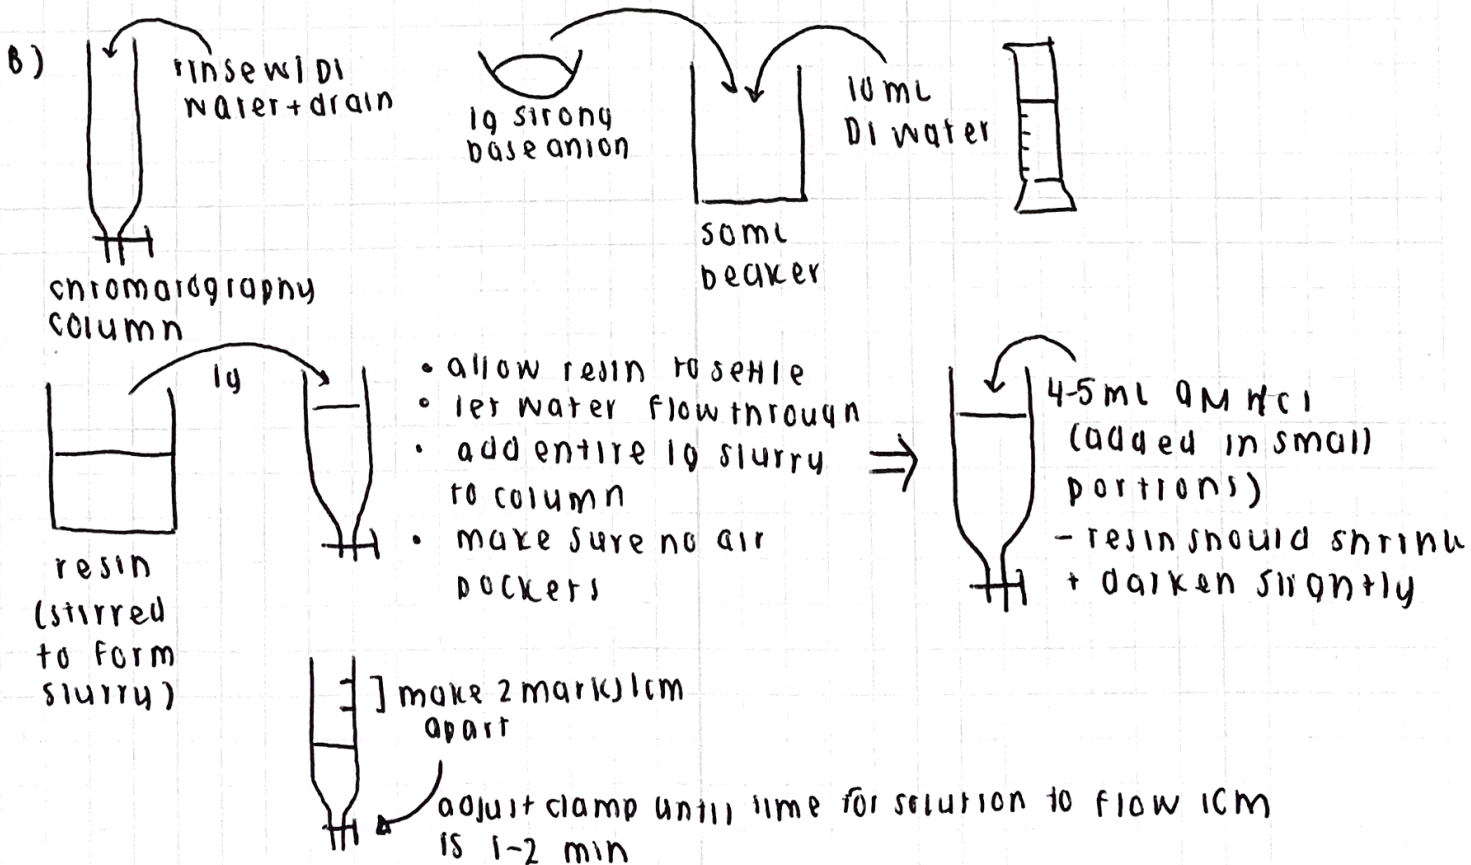 B)
rinse w/ DI
water + drain
chromatography
column
1g strong
base anion
50ml
beaker
10 mL
DI water
1g
resin
(stirred
to form
slurry)
• allow resin to settle
• let water flow through
• add entire 1g slurry
to column
• make sure no air
pockets
⇒
4-5 mL 9M HCl
(added in small
portions)
- resin should shrink
+ darken slightly
] make 2 marks 1cm
apart
adjust clamp until time for solution to flow 1cm
is 1-2 min